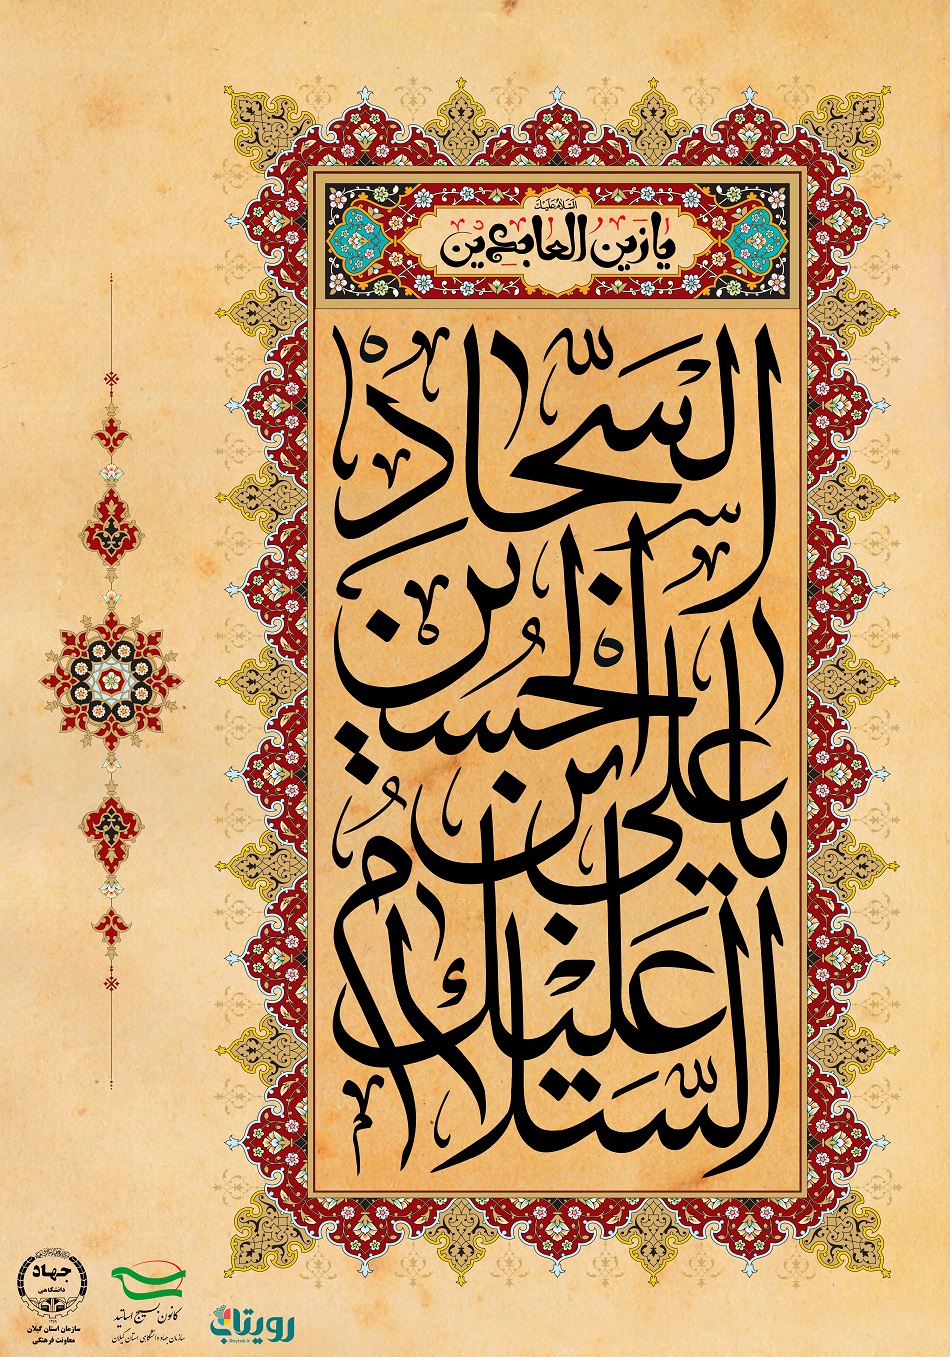 السَّلامُ عَلَیکَ
یا زین العابدین
السَّلامُ عَلَیْکَ
یا علی ابن
الْحُسَین
السَّجّادْ
جهاد
دانشگاهی
۱۳۵۹
سازمان استان گیلان
معاونت فرهنگی
کانون بسیج اساتید
سازمان جهاددانشگاهی استان گیلان
رویتاب
Roytab.ir